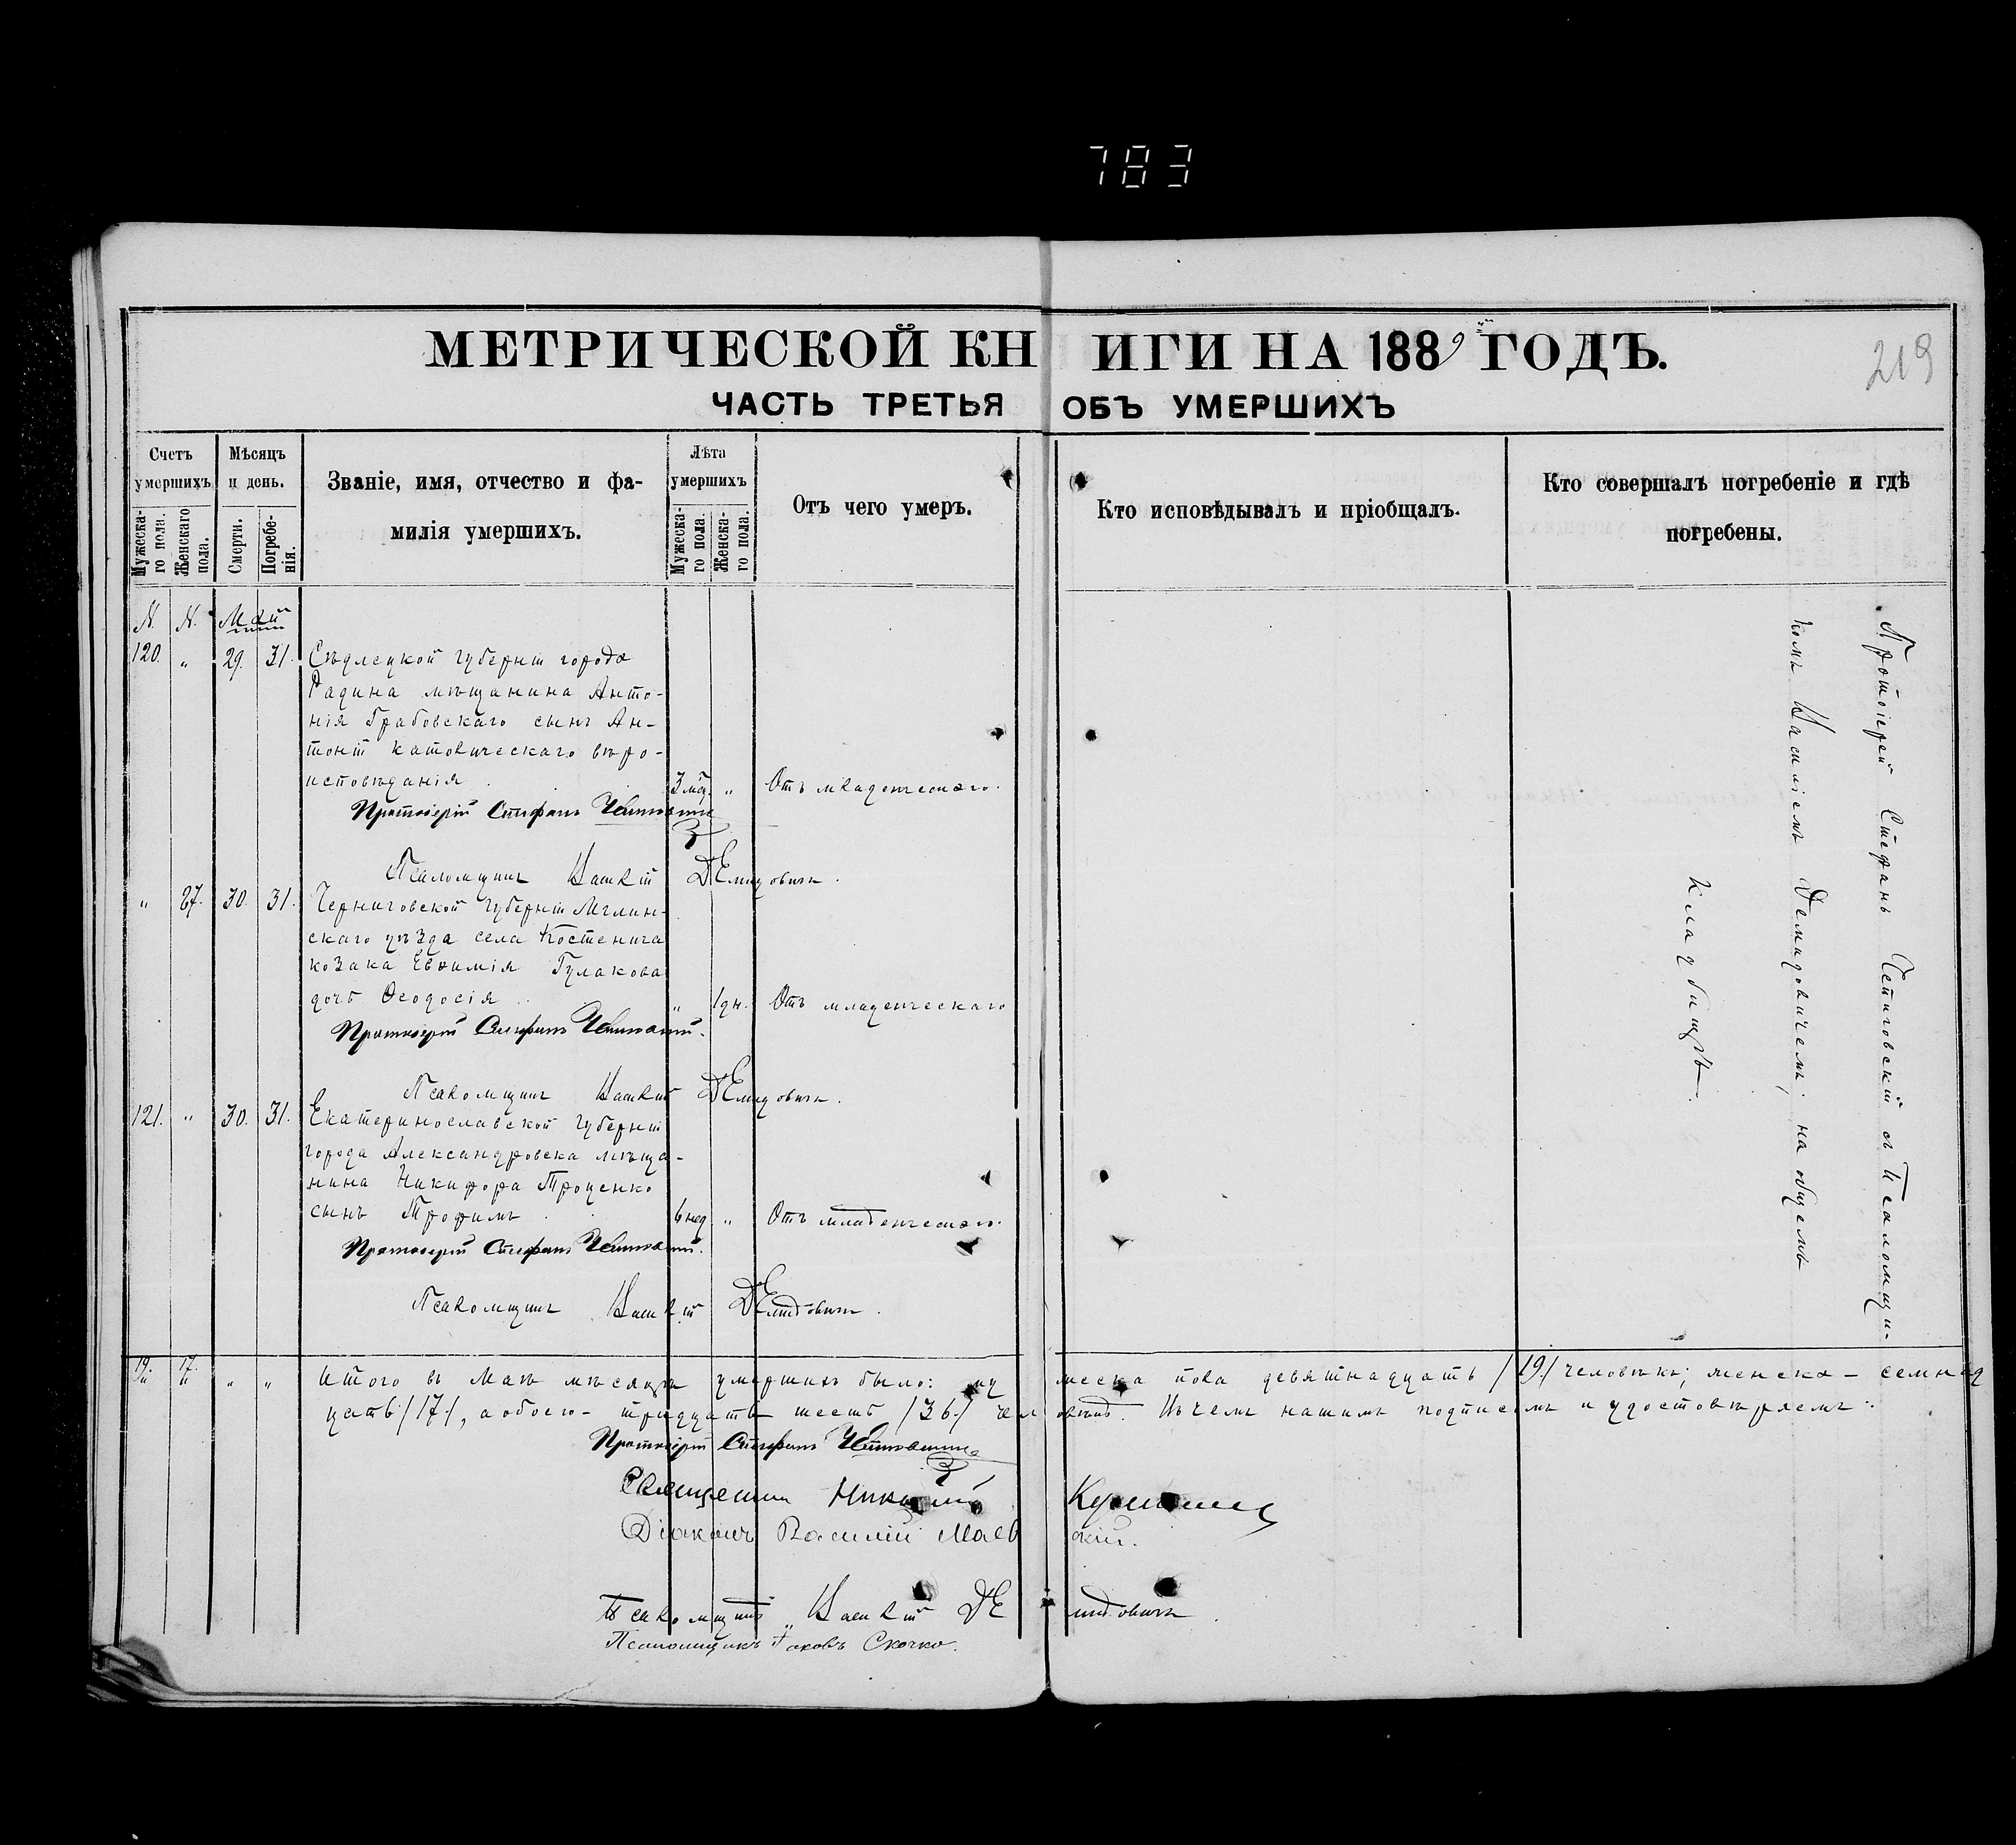 783
МЕТРИЧЕСКОЙ КНИГИ НА 1889 ГОДЪ.
219
ЧАСТЬ ТРЕТЬЯ ОБЪ УМЕРШИХЪ
Счетъ умершихъ
Мужеска-го пола.
Женскаго пола.
Мѣсяцъ и день.
Смерти.
Погребе-нія.
Званіе, имя, отчество и фа-
милія умершихъ.
Лѣта умершихъ
Мужеска-го пола.
Женска-го пола.
Отъ чего умеръ.
Кто исповѣдывалъ и пріобщалъ.
Кто совершалъ погребеніе и гдѣ
погребены.
N. N. Май
120. „ 29. 31. Сѣдлецкой губерніи города
Радина мѣщанина Анто-
нія Грабовскаго сынъ Ан-
тоній католическаго вѣро-
исповѣданія 3 мѣс. „ Отъ младенческаго.
Протоіерей Стефанъ
Псаломщикъ Василій Демидовичъ.
„ 27. 30. 31. Черниговской губерніи Мглин-
скаго уѣзда села Костенича
козака Евѳимія Гулакова
дочь Ѳеодосія „ 1 дн. Отъ младенческаго
Протоіерей Стефанъ
Псаломщикъ Василій Демидовичъ.
121. „ 30. 31. Екатеринославской губерніи
города Александровска мѣща-
нина Никифора Троценко
сынъ Трофимъ 6 нед „ Отъ младенческаго.
Протоіерей Стефанъ
Псаломщикъ Василій Демидовичъ.
Протоіерей Стефанъ съ Псаломщи-
комъ Василіемъ Демидовичемъ, на общемъ
кладбищѣ.
19. 17. „ „ Итого въ Маѣ мѣсяцѣ умершихъ было: мужеска пола девятнадцать /19/ человѣкъ; женска – семнад
цать /17/, а обоего – тридцать шесть /36/ человѣкъ. Въ чемъ нашимъ подписомъ и удостовѣряемъ:
Протоіерей Стефанъ
Священникъ
Діаконъ Василій Маевскій.
Псаломщикъ Василій Демидовичъ.
Псаломщикъ Іаковъ Скочко.